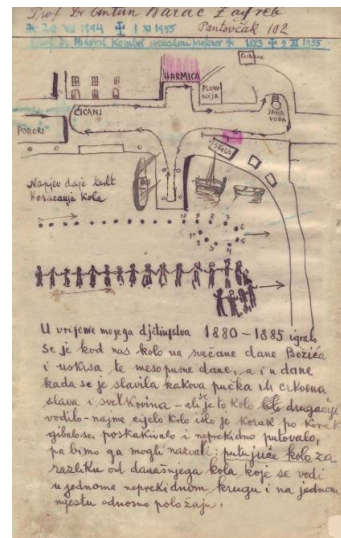 Prof Dr Antun Barac Zagreb
20 VIII 1894 ✠ 1 XI 1955 Pantovčak 102
Prof. Dr. Mihovil Kombol 1883 ✠ 9 XI 1955
HARMICA
PLOVANIJA
CICANI
JAVNA VODA
ŠKOLA
Napjev daje takt
Koracanja Kola
U vrijeme mojega djetinstva 1880-1885 igralo
se je kod nas kolo na svečane dane Božića
i uskrsa te mesopusne dane, a i u dane
kada se je slavila kakova pučka ili crkvena
slava i svetkovina - ali se je to Kolo drugačije
vodilo - najme cijelo Kolo išlo je Korak po Korak
gibalo se, poskakivalo i neprekidno putovalo,
pa bi mo ga mogli nazvali: putujuće kolo za
razliku od današnjega kola koje se vodi
u jednome neprekidnom krugu i na jednom
mjestu odnosno položaju.